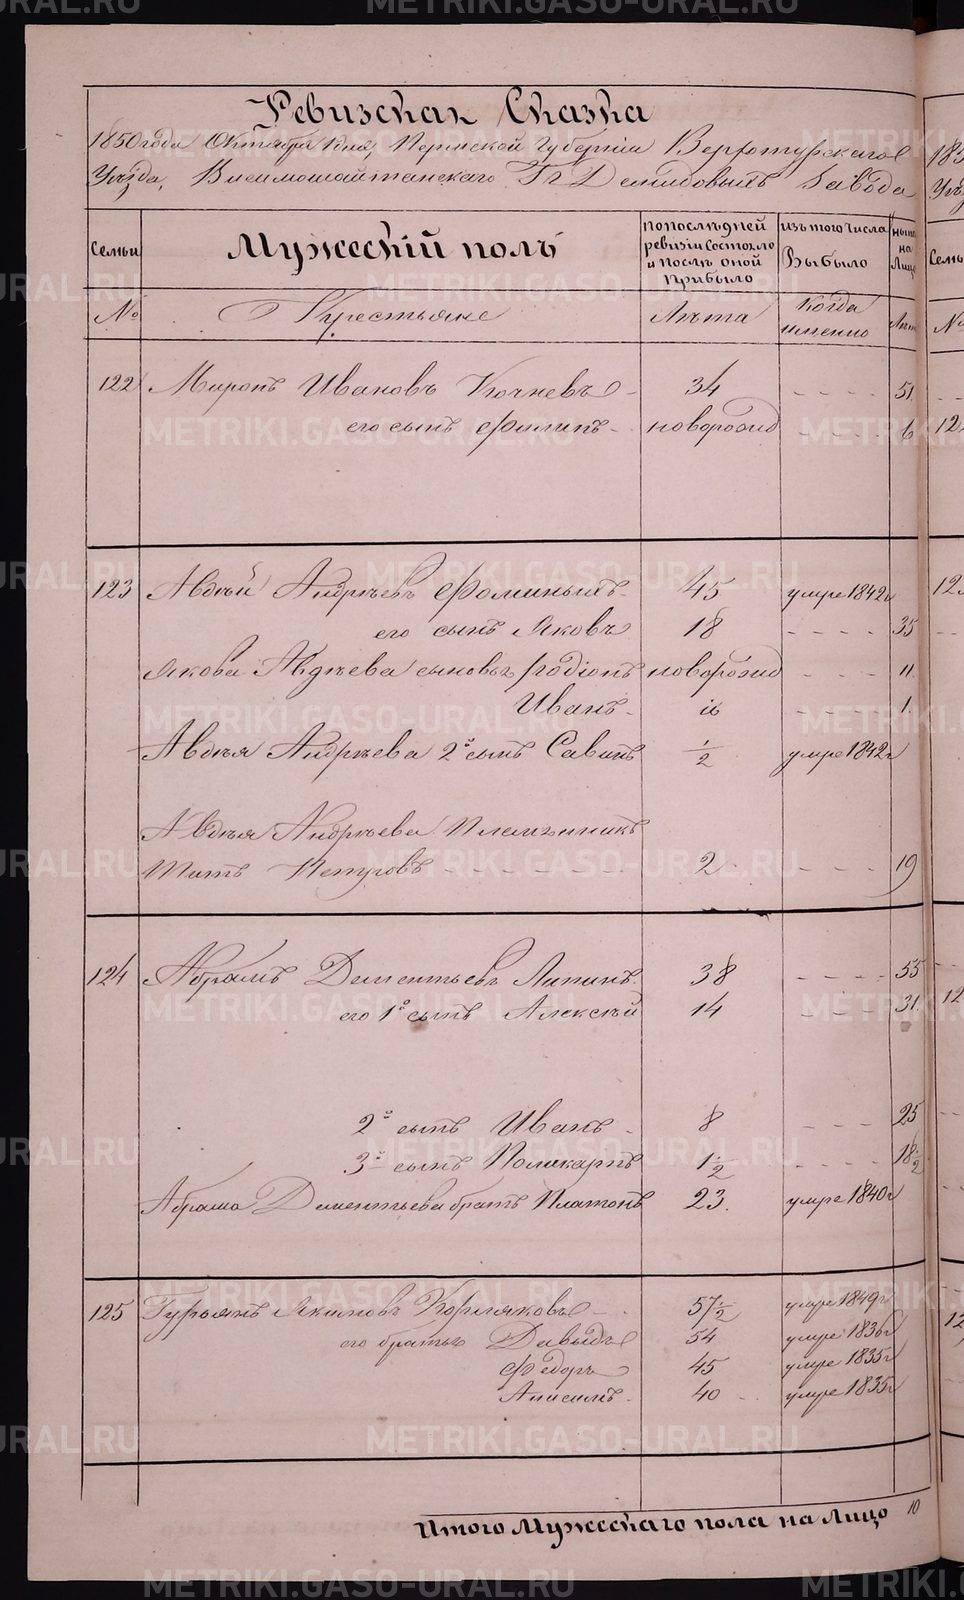 Ревизская Сказка
1850 года Октября дня, Пермской Губернии Верхотурскаго
Уѣзда, Висимошайтанскаго Гг Демидовыхъ Завода
Семьи
Мужескій полъ
попослѣдней
ревизіи Состояло
и послѣ оной
Прибыло
изъ того числа
Выбыло
ныне
на
Лицо
№
Крестьяне
Лѣта
Когда
именно
Лѣта
122 Миронъ Ивановъ Кочневъ - 34 - - - - 51
его сынъ Филипъ - новорожд - - - - 6
123 Авдѣй Андрѣевъ Фоминыхъ - 45 умре 1842г
его сынъ Яковъ 18 - - - - 35
Якова Авдѣева сыновья Родіонъ новорожд - - - - 11
Иванъ - и - - - - 1
Авдѣя Андрѣева 2й сынъ Савинъ 1/2 умре 1842г
Авдѣя Андрѣева Племянникъ
Титъ Петровъ - - - - - - - 2 - - - - 19
124 Абрамъ Дементьевъ Липинъ 38 - - - - 55
его 1й сынъ Алексѣй 14 - - - - 31
2й сынъ Иванъ - 8 - - - - 25
3й сынъ Поликарпъ 1 1/2 - - - - 18 1/2
Абрама Дементьева братъ Платонъ 23. умре 1840г
125 Гурьянъ Якимовъ Корляковъ - 57 1/2 умре 1849г
его братья Давыдъ 54 умре 1836г
Федоръ 45 умре 1835г
Анисимъ - 40 - умре 1835г
Итого Мужескаго пола на Лицо 10
METRIKI.GASO-URAL.RU